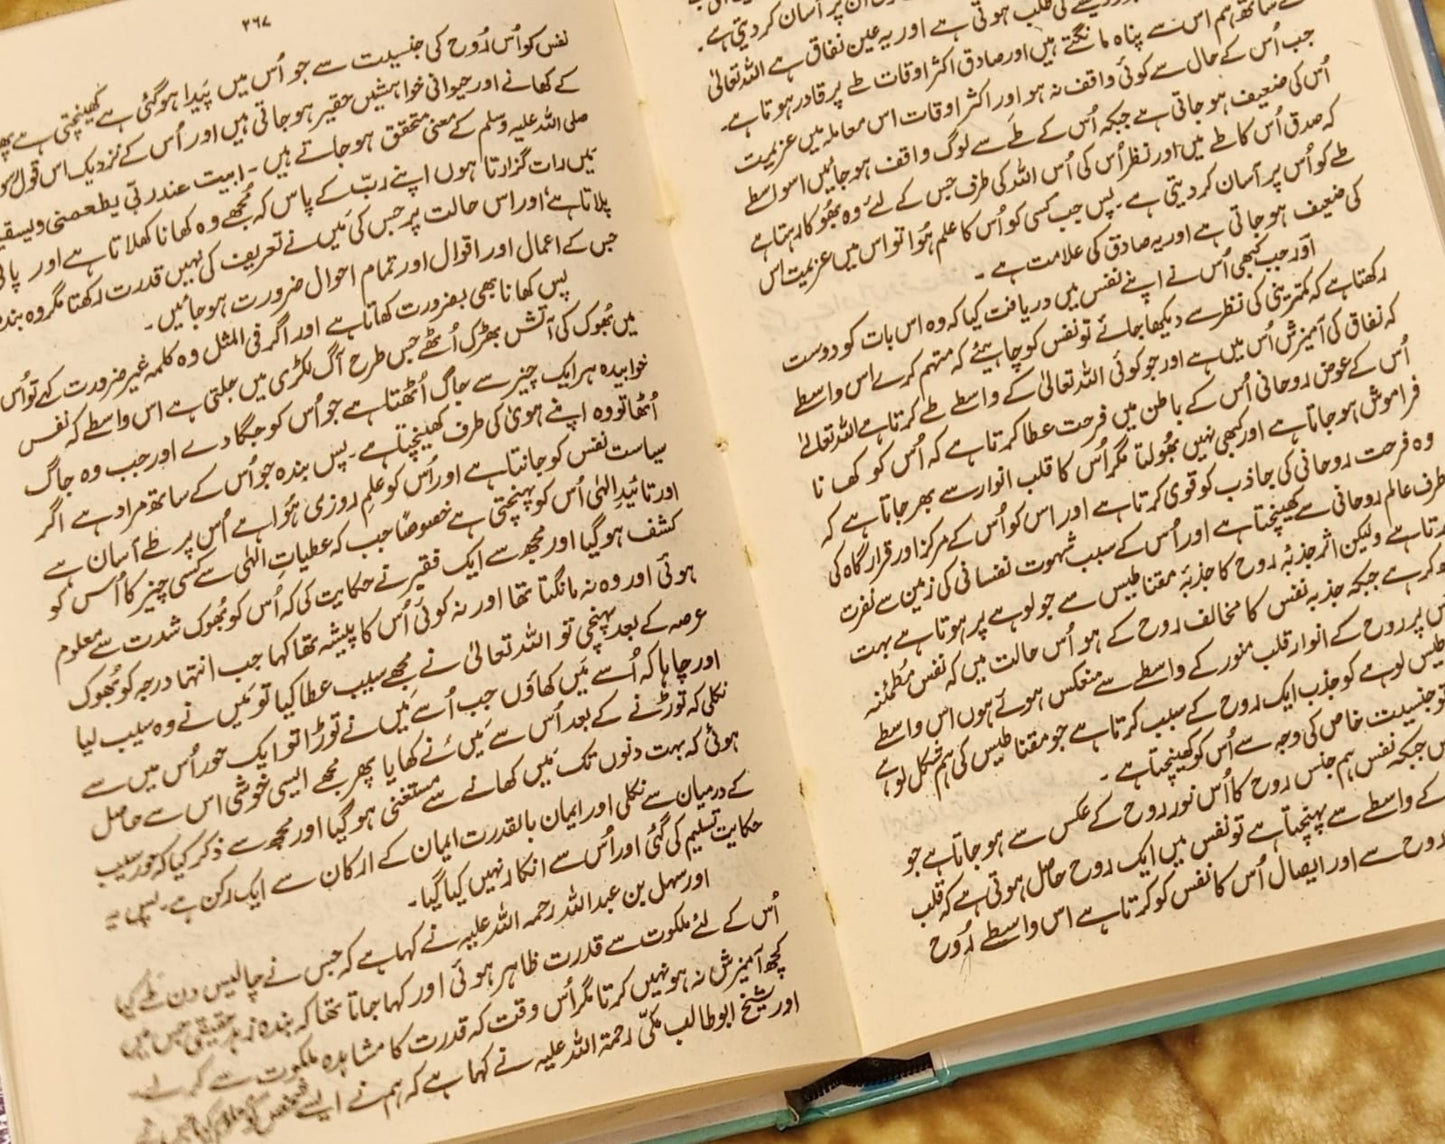 اُن پر آسان کر دیتی ہے۔
طلب ہوتی ہے اور یہ عین نفاق ہے اللہ تعالیٰ
کے ساتھ ہم اس سے پناہ مانگتے ہیں اور صادق اکثر اوقات طے پر قادر ہوتا ہے۔
جب اُس کے حال سے کوئی واقف نہ ہو اور اکثر اوقات اس معاملہ میں عزیمت
اُس کی ضعیف ہو جاتی ہے جبکہ اُس کے طے سے لوگ واقف ہو جائیں اسواسطے
کہ صدق اُس کا طے میں اور نظر اُس کی اُس اللہ کی طرف جس کے لئے وہ بھُوکا رہتا ہے
طے کو اُس پر آسان کر دیتی ہے۔ پس جب کسی کو اُس کا علم ہُوا تو اس میں عزیمت اس
کی ضعیف ہو جاتی ہے اور یہ صادق کی علامت ہے۔
اور جب کبھی اُس نے اپنے نفس میں دریافت کیا کہ وہ اس بات کو دوست
رکھتا ہے کہ کمتری کی نظر سے دیکھا جائے تو نفس کو چاہیئے کہ متہم کرے اس واسطے
کہ نفاق کی آمیزش اُس میں ہے اور جو کوئی اللہ تعالیٰ کے واسطے طے کرتا ہے اللہ تعالیٰ
اُس کے عوض روحانی اُس کے باطن میں فرحت عطا کرتا ہے کہ اُس کو کھانا
فراموش ہو جاتا ہے اور کبھی نہیں بھُولتا مگر اُس کا قلب انوار سے بھر جاتا ہے کہ
وہ فرحت روحانی کی جاذب کو قوی کرتا ہے اور اس کو اُس کے مرکز اور قرار گاہ کی
طرف عالم روحانی سے کھینچتا ہے اور اُس کے سبب شہوت نفسانی کی زمین سے نفرت
کرتا ہے ولیکن اثر جذبۂ روح کا جذبۂ مقناطیس سے جو لوہے پر ہوتا ہے بہت
کرے ہے جبکہ جذبہ نفس کا مخالف روح کے ہو اُس حالت میں کہ نفس مطمئنہ
پر روح کے انوار قلب منور کے واسطے سے منعکس ہوتے ہوں اس واسطے
لوہے کو جذب ایک روح کے سبب کرتا ہے جو مقناطیس کی ہم شکل لوہے
تو جنسیت خاص کی وجہ سے اُس کو کھینچتا ہے۔
جبکہ نفس ہم جنس روح کا اُس نور روح کے عکس سے ہو جاتا ہے جو
کے واسطے سے پہنچتا ہے تو نفس میں ایک روح حاصل ہوتی ہے کہ قلب
روح سے اور ایصال اُس کا نفس کو کرتا ہے اس واسطے رُوح
۳۶۷
نفس کو اُس رُوح کی جنسیت سے جو اُس میں پَیدا ہو گئی ہے کھینچتی ہے
کے کھانے اور حیوانی خواہشیں حقیر ہو جاتی ہیں اور اُس کے نزدیک اس قول
صلی اللہ علیہ وسلم کے معنی متحقق ہو جاتے ہیں۔ ابیت عند ربی یطعمنی ویسقی
مَیں رات گزارتا ہوں اپنے ربّ کے پاس کہ مُجھے وہ کھانا کھلاتا ہے اور پانی
پلاتا ہے اور اس حالت پر جس کی مَیں نے تعریف کی نہیں قدرت رکھتا مگر وہ بندہ
جس کے اعمال اور اقوال اور تمام احوال ضرورت ہو جائیں۔
پس کھانا بھی بضرورت کھاتا ہے اور اگر فی المثل وہ کلمہ غیر ضرورت کہے تو اُس
میں بھُوک کی آتش بھڑک اُٹھے جس طرح آگ لکڑی میں جلتی ہے اس واسطے کہ نفس
خوابیدہ ہر ایک چیز سے جاگ اُٹھتا ہے جو اُس کو جگا دے اور جب وہ جاگ
اُٹھا تو وہ اپنے ہویٰ کی طرف کھینچتا ہے۔ پس بندہ جو اُس کے ساتھ مراد ہے اگر
سیاست نفس کو جانتا ہے اور اُس کو علم روزی ہُوا ہے اُس پر طے آسان ہے
اور تائیدِ الٰہی اُس کو پہنچتی ہے خصوصًا جب کہ عطیات الٰہی سے کسی چیز کا اُس کو
کشف ہو گیا اور مجھ سے ایک فقیر نے حکایت کی کہ اُس کو بھُوک شدت سے معلوم
ہوئی اور وہ نہ مانگتا تھا اور نہ کوئی اُس کا پیشہ تھا کہا جب انتہا درجہ کو بھُوک
عرصہ کے بعد پہنچی تو اللہ تعالیٰ نے مجھے سیب عطا کیا تو مَیں نے وہ سیب لیا
اور چاہا کہ اُسے مَیں کھاؤں جب اُسے مَیں نے توڑا تو ایک حور اُس میں سے
نکلی کہ توڑنے کے بعد اُس سے مَیں نے کھایا پھر مجھے ایسی خوشی اس سے حاصل
ہوئی کہ بہت دنوں تک مَیں کھانے سے مستغنی ہو گیا اور مجھ سے ذکر کیا کہ حور سیب
کے درمیان سے نکلی اور ایمان بالقدرت ایمان کے ارکان سے ایک رکن ہے۔ پس یہ
حکایت تسلیم کی گئی اور اُس سے انکار نہیں کیا گیا۔
اور سہل بن عبداللہ رحمہ اللہ علیہ نے کہا ہے کہ جس نے چالیس دن طے کیا
اُس کے لئے ملکوت سے قدرت ظاہر ہوئی اور کہا جاتا تھا کہ بندہ زہد حقیقی جس میں
کچھ آمیزش نہ ہو نہیں کرتا مگر اُس وقت کہ قدرت کا مشاہدہ ملکوت سے کرے۔
اور شیخ ابو طالب مکّی رحمۃ اللہ علیہ نے کہا ہے کہ ہم نے ایسے شخص کو